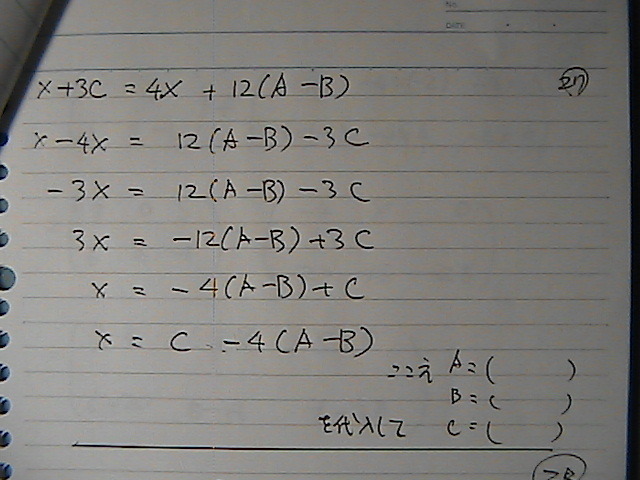 No.
DATE
x+3C = 4x + 12(A-B)
x-4x = 12(A-B)-3C
-3x = 12(A-B)-3C
3x = -12(A-B)+3C
x = -4(A-B)+C
x = C-4(A-B)
A=( )
B=( )
を代入して C=( )